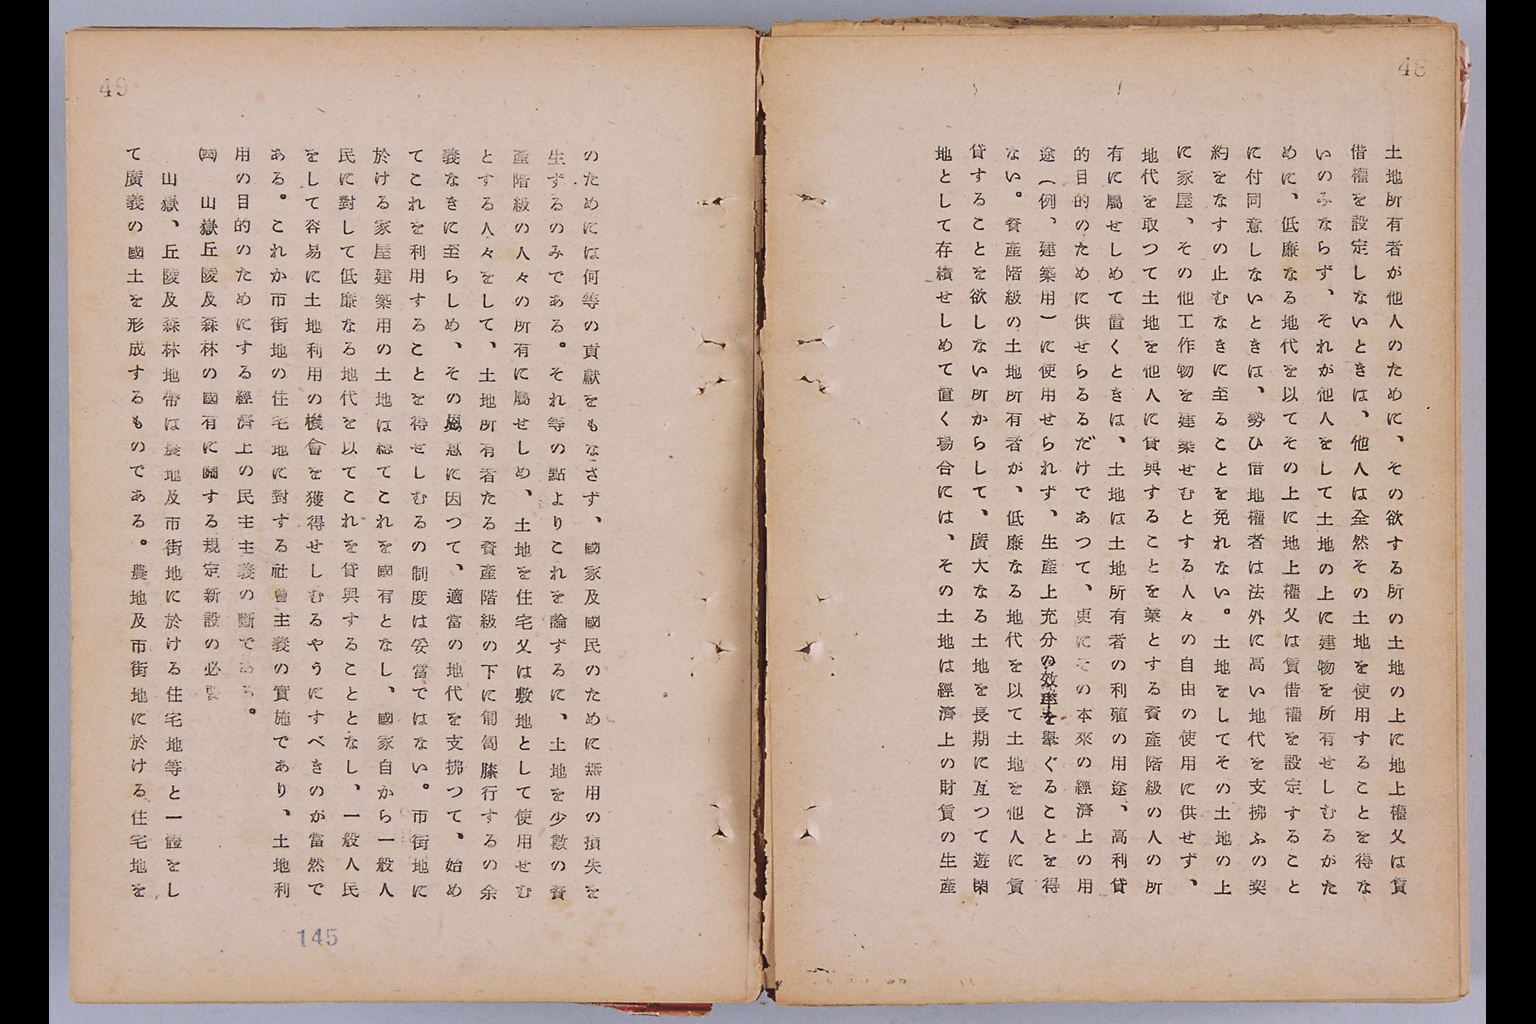 48
土地所有者が他人のために、その欲する所の土地の上に地上權又は賃
借權を設定しないときは、他人は全然その土地を使用することを得な
いのみならず、それが他人をして土地の上に建物を所有せしむるがた
めに、低廉なる地代を以てその上に地上權又は賃借權を設定すること
に付同意しないときは、勢ひ借地權者は法外に高い地代を支拂ふの契
約をなすの止むなきに至ることを免れない。土地をしてその土地の上
に家屋、その他工作物を建築せむとする人々の自由の使用に供せず、
地代を取つて土地を他人に貸與することを業とする資產階級の人の所
有に屬せしめて置くときは、土地は土地所有者の利殖の用途、高利貸
的目的のために供せらるるだけであつて、更にその本來の經濟上の用
途(例、建築用)に使用せられず、生產上充分の效率を舉ぐることを得
ない。資產階級の土地所有者が、低廉なる地代を以て土地を他人に賃
貸することを欲しない所からして、廣大なる土地を長期に亙つて遊閑
地として存續せしめて置く場合には、その土地は經濟上の財貨の生產
49
のためには何等の貢獻をもなさず、國家及國民のために無用の損失を
生ずるのみである。それ等の點よりこれを論ずるに、土地を少數の資
產階級の人々の所有に屬せしめ、土地を住宅又は敷地として使用せむ
とする人々をして、土地所有者たる資產階級の下に匍匐膝行するの余
義なきに至らしめ、その恩惠に因つて、適當の地代を支拂つて、始め
てこれを利用することを得せしむるの制度は妥當ではない。市街地に
於ける家屋建築用の土地は總てこれを國有となし、國家自から一般人
民に對して低廉なる地代を以てこれを貸與することとなし、一般人民
をして容易に土地利用の機會を獲得せしむるやうにすべきのが當然で
ある。これか市街地の住宅地に對する社會主義の實施であり、土地利
用の目的のためにする經濟上の民主主義の斷である。
㈣ 山嶽丘陵及森林の國有に關する規定新設の必要
山嶽、丘陵及森林地帶は農地及市街地に於ける住宅地等と一體をし
て廣義の國土を形成するものである。農地及市街地に於ける住宅地を
145